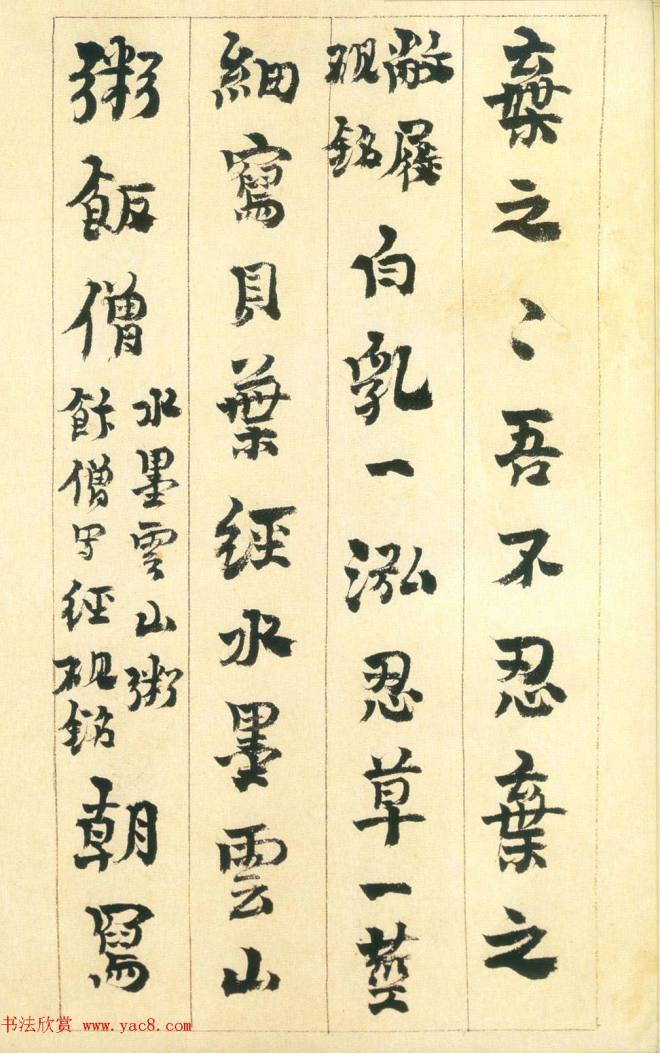 棄之〻吾不忍棄之
敝屐
硯銘
白乳一泓忍草一莖
細寫貝葉經水墨雲山
粥飯僧
水墨雲山粥
飰僧写經硯銘
朝寫
书法欣赏 www.yac8.com